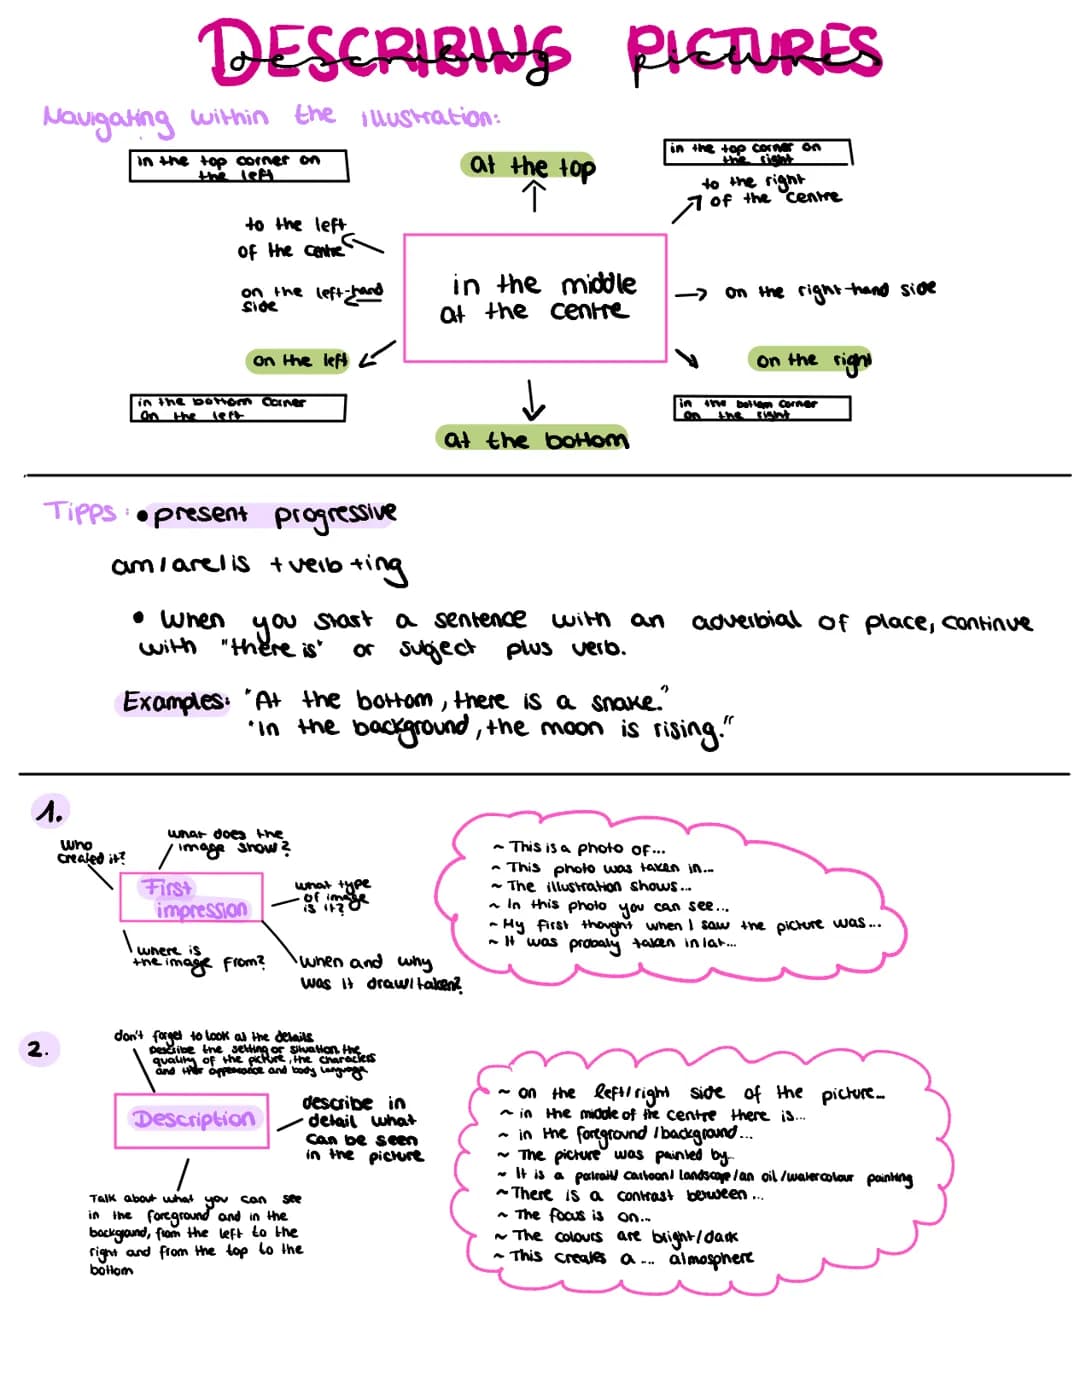 DESCRIBING PICTURES
describing pictures
Navigating within the illustration:
in the top corner on
the left
at the top
in the top corner on
the right
to the right
of the centre
to the left
of the centre
in the middle
at the centre
on the left-hand
side
on the right-hand side
on the left
on the right
in the bottom corner
on the left
in the bottom corner
on the right
at the bottom
Tipps: • present progressive
am/are/is + verb + ing
• When you start a sentence with an adverbial of place, continue
with "there is" or subject plus verb.
Examples: "At the bottom, there is a snake."
"In the background, the moon is rising."
1.
Who
created it?
what does the
image show?
First
impression
what type
of image
is it?
where is
the image from?
When and why
was it draw/taken?
~ This is a photo of...
~ This photo was taken in...
~ The illustration shows...
~ In this photo you can see...
~ My first thought when I saw the picture was...
~ It was probaly taken in/at...
2.
don't forget to look at the details
Describe the setting or situation, the
quality of the picture, the characters
and their appearance and body language
Description
describe in
detail what
can be seen
in the picture
Talk about what you can see
in the foreground and in the
background, from the left to the
right and from the top to the
bottom
~ on the left/right side of the picture...
~ in the middle of the centre there is...
~ in the foreground / background...
~ The picture was painted by...
~ It is a portrait/ cartoon/ landscape/an oil/watercolour painting
~ There is a contrast between...
~ The focus is on...
~ The colours are bright/dark
~ This creates a ... atmosphere